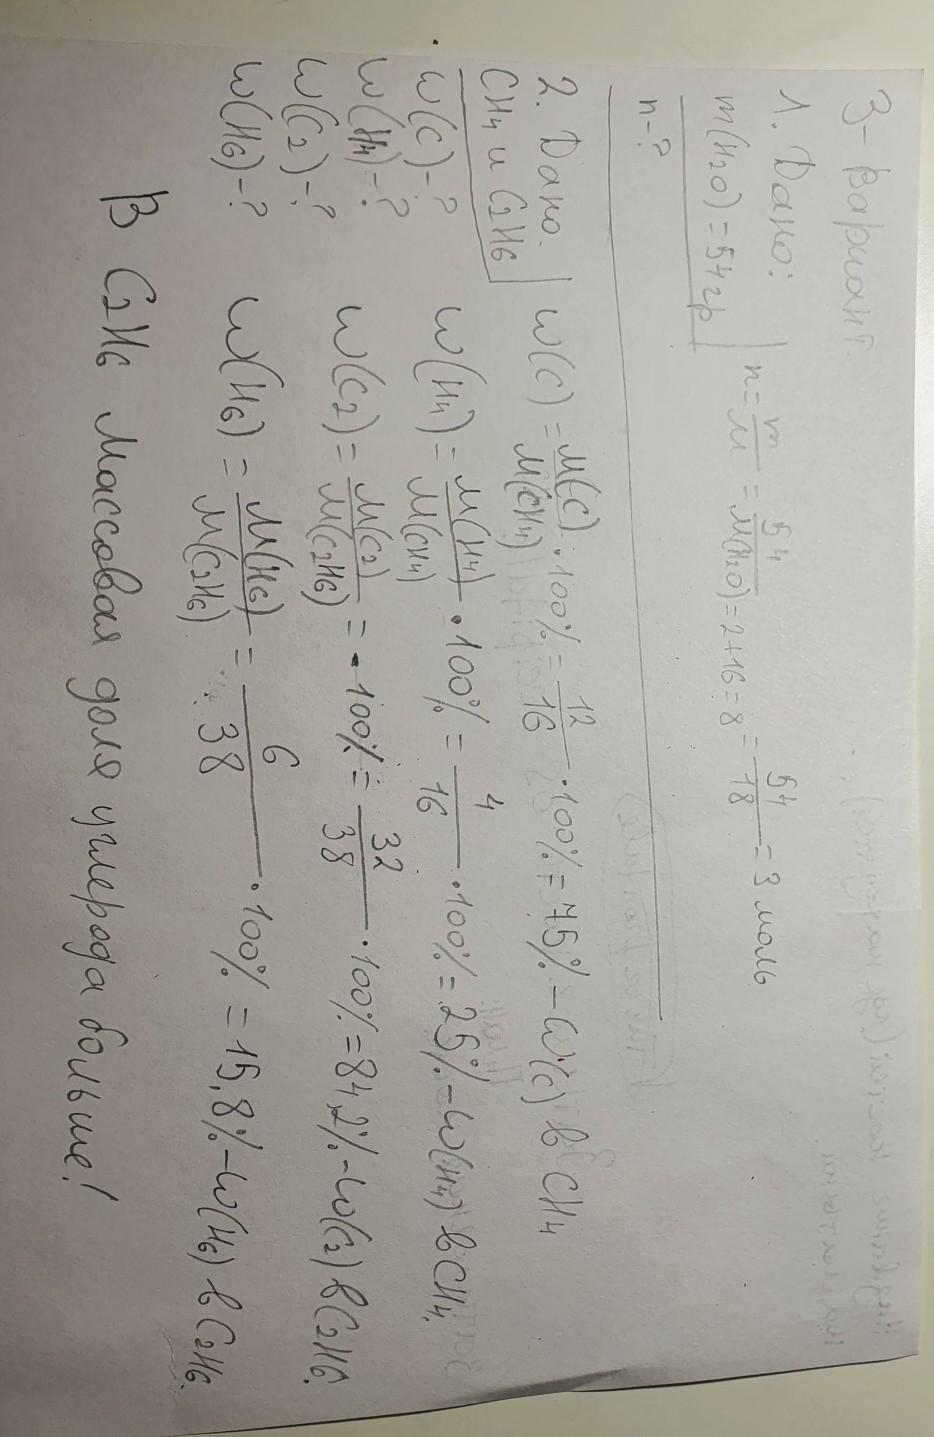 3-Вариант.
1. Дано:
m(H₂O) = 54гр
n-?
n = m/M = 54/M(H₂O) = 2+16=8 = 54/18 = 3 моль
2. Дано.
CH₄ и C₂H₆
W(C)-?
W(H₄)-?
W(C₂)-?
W(H₆)-?
W(C) = M(C)/M(CH₄) · 100% = 12/16 · 100% = 75% - W(C) в CH₄
W(H₄) = M(H₄)/M(CH₄) · 100% = 4/16 · 100% = 25% - W(H₄) в CH₄.
W(C₂) = M(C₂)/M(C₂H₆) = · 100% = 32/38 · 100% = 84,2% - W(C₂) в C₂H₆.
W(H₆) = M(H₆)/M(C₂H₆) = 6/38 · 100% = 15,8% - W(H₆) в C₂H₆.
В C₂H₆ массовая доля углерода больше!